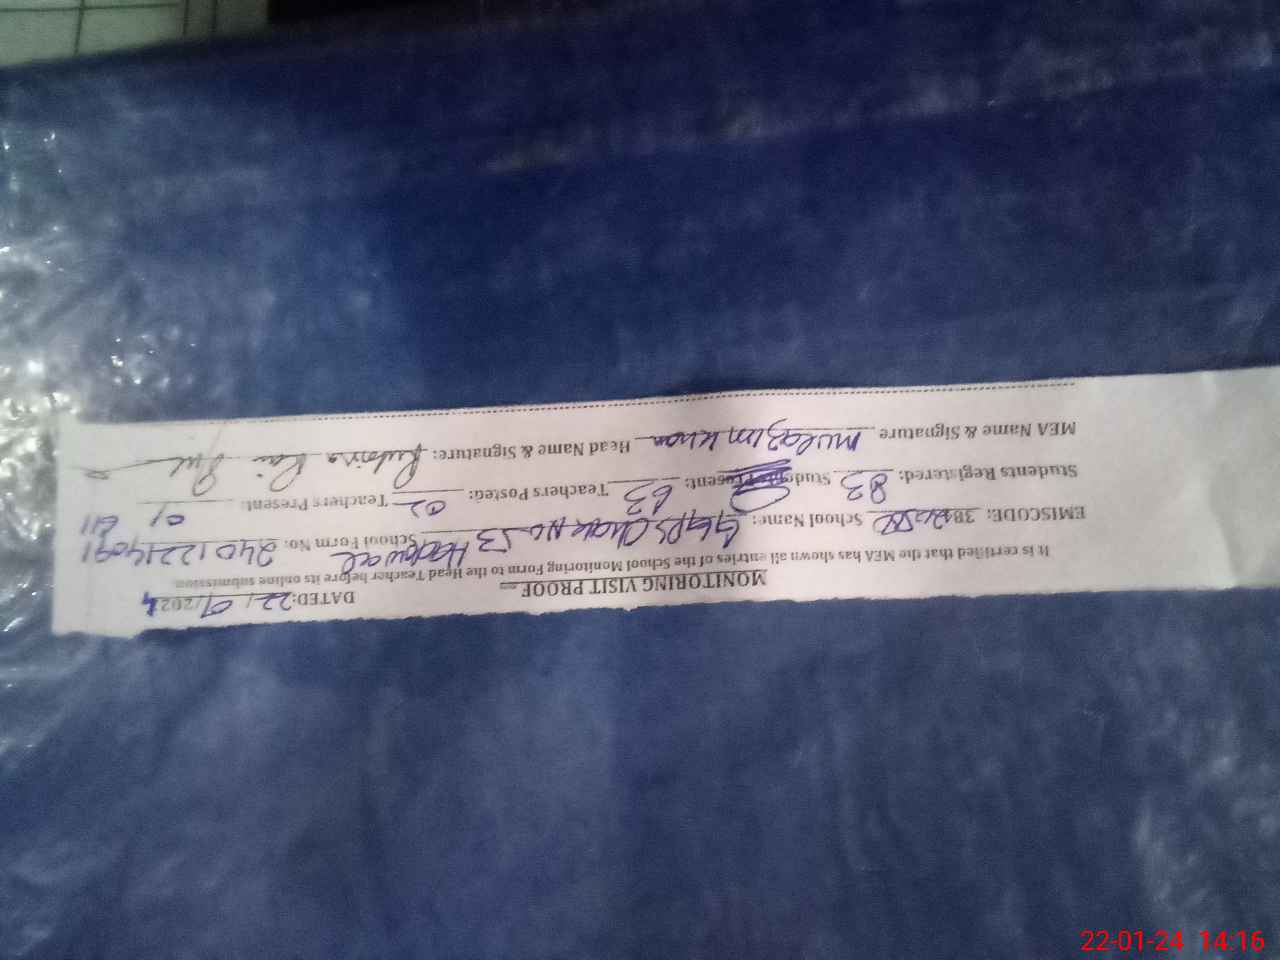 MONITORING VISIT PROOF DATED: 22/01/2024
It is certified that the MEA has shown all entries of the School Monitoring Form to the Head Teacher before its online submission
EMISCODE: 38 School Name: GGPS Chak No. 53 School Form No: 24012214091
Students Registered: 83 Students Present: 63 Teachers Posted: 02 Teachers Present: 01
MEA Name & Signature mulazim khan Head Name & Signature: Rubina
22-01-24 14:16